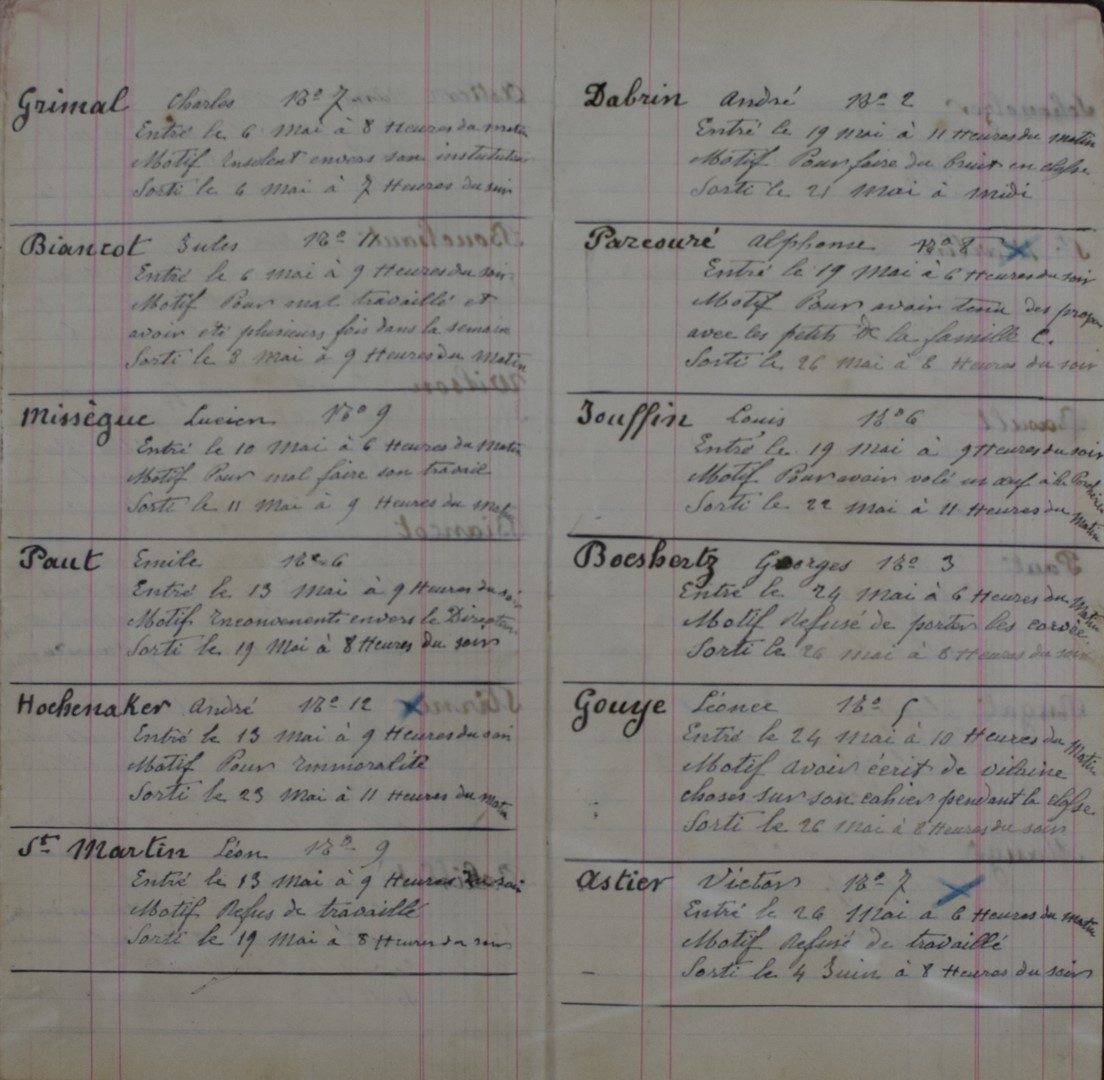 Grimal Charles N° 7
Entré le 6 Mai à 8 Heures du matin
Motif Insolent envers son instututeur
Sorti le 6 Mai à 7 Heures du soir
Biancot Jules N° 11
Entré le 6 Mai à 9 Heures du soir
Motif Pour mal travaillé et
avoir été plusieurs fois dans la semaine
Sorti le 8 Mai à 9 Heures du Matin
Missègue Lucien N° 9
Entré le 10 Mai à 6 Heures du Matin
Motif Pour mal faire son travail
Sorti le 11 Mai à 9 Heures du mat
Paut Emile N° 6
Entré le 13 Mai à 9 Heures du soir
Motif Inconvenents envers le Directeur
Sorti le 19 Mai à 8 Heures du soir
Hochenaker André N° 12
Entré le 13 Mai à 9 Heures du soir
Motif Pour Immoralité
Sorti le 23 Mai à 11 Heures du Mat
St Martin Léon N° 9
Entré le 13 Mai à 9 Heures du soir
Motif Refus de travaillé
Sorti le 19 Mai à 8 Heures du soir
Dabrin André N° 2
Entré le 19 Mai à 11 Heures du Matin
Motif Pour faire du bruit en classe
Sorti le 21 Mai à midi
Parcouré Alphonse N° 8
Entré le 19 Mai à 6 Heures du soir
Motif Pour avoir tenu des propos
avec les petits de la famille C.
Sorti le 26 Mai à 8 Heures du soir
Jouffin Louis N° 6
Entré le 19 Mai à 9 Heures du soir
Motif Pour avoir volé un œuf à la Porcherie
Sorti le 22 Mai à 11 Heures du Matin
Boeshertz Georges N° 3
Entré le 24 Mai à 6 Heures du Matin
Motif Refusé de porter les corvée
Sorti le 26 Mai à 8 Heures du soir
Gouye Léonce N° 5
Entré le 24 Mai à 10 Heures du Matin
Motif avoir écrit de vilaine
choses sur son cahier pendant la classe
Sorti le 26 Mai à 8 Heures du soir
Astier Victor N° 7
Entré le 26 Mai à 6 Heures du Matin
Motif Refusé de travaillé
Sorti le 4 Juin à 8 Heures du soir